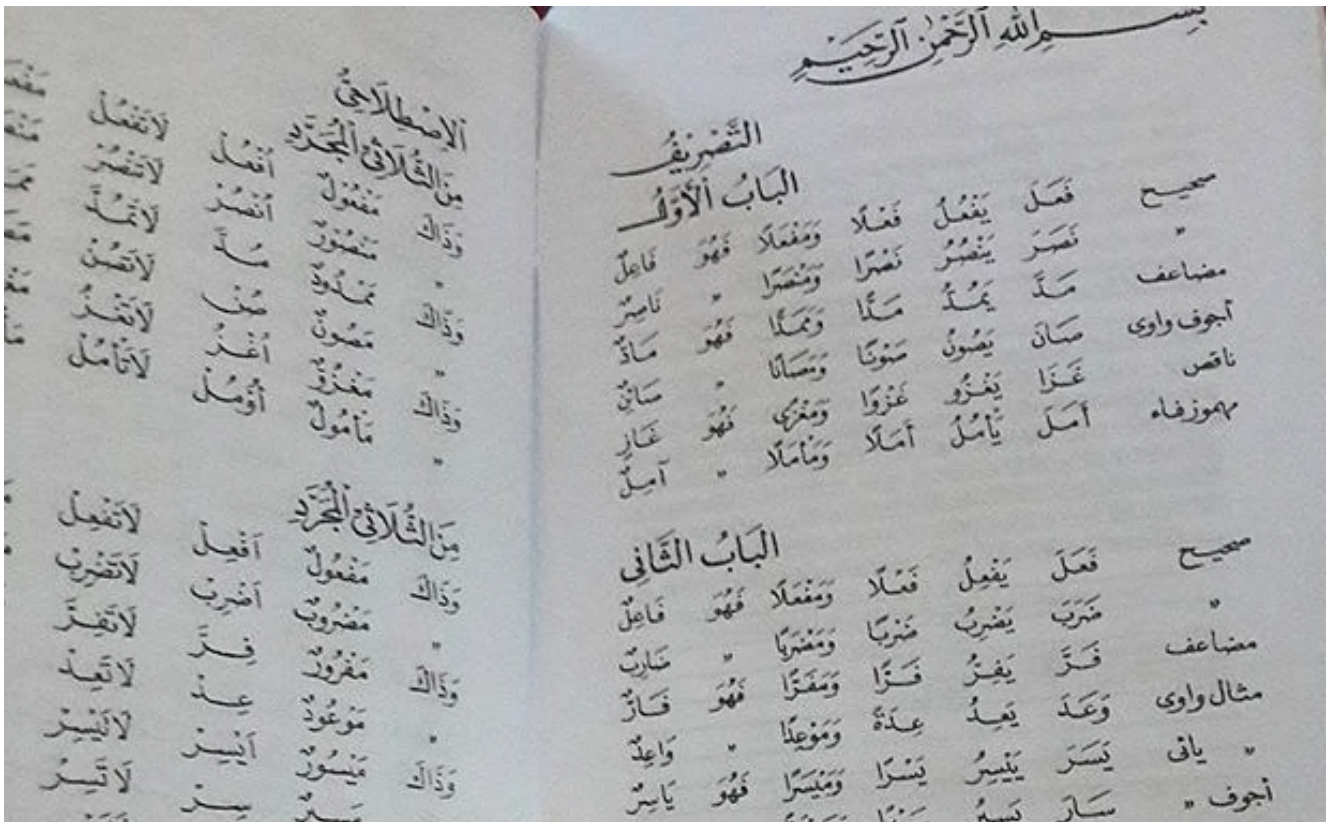 بِسْمِ اللهِ الرَّحْمٰنِ الرَّحِيْمِ
التَّصْرِيْفُ
البَابُ الْأَوَّلُ
صحيح فَعَلَ يَفْعُلُ فَعْلًا وَمَفْعَلًا فَهُوَ فَاعِلٌ
" نَصَرَ يَنْصُرُ نَصْرًا وَمَنْصَرًا " نَاصِرٌ
مضاعف مَدَّ يَمُدُّ مَدًّا وَمَمَدًّا فَهُوَ مَادٌّ
أجوف واوى صَانَ يَصُوْنُ صَوْنًا وَمَصَانًا " صَائِنٌ
ناقص غَزَا يَغْزُو غَزْوًا وَمَغْزًى فَهُوَ غَازٍ
مهموز فاء أَمَلَ يَأْمُلُ أَمَلًا وَمَأْمَلًا " آمِلٌ
البَابُ الثَّانِى
صحيح فَعَلَ يَفْعِلُ فَعْلًا وَمَفْعَلًا فَهُوَ فَاعِلٌ
" ضَرَبَ يَضْرِبُ ضَرْبًا وَمَضْرَبًا " ضَارِبٌ
مضاعف فَرَّ يَفِرُّ فَرًّا وَمَفَرًّا فَهُوَ فَارٌّ
مثال واوى وَعَدَ يَعِدُ عِدَةً وَمَوْعِدًا " وَاعِدٌ
" يائى يَسَرَ يَيْسِرُ يَسْرًا وَمَيْسَرًا فَهُوَ يَاسِرٌ
أجوف " سَارَ يَسِيْرُ
الْاِصْطِلَاحِيُّ
مِنَ الثُّلَاثِيِّ الْمُجَرَّدِ
وَذَاكَ مَفْعُوْلٌ اُفْعُلْ لَاتَفْعُلْ
" مَنْصُوْرٌ اُنْصُرْ لَاتَنْصُرْ
وَذَاكَ مَمْدُوْدٌ مُدَّ لَاتَمُدَّ
" مَصُوْنٌ صُنْ لَاتَصُنْ
وَذَاكَ مَغْزُوٌّ اُغْزُ لَاتَغْزُ
" مَأْمُوْلٌ اُوْمُلْ لَاتَأْمُلْ
مِنَ الثُّلَاثِيِّ الْمُجَرَّدِ
وَذَاكَ مَفْعُوْلٌ اِفْعِلْ لَاتَفْعِلْ
" مَضْرُوْبٌ اِضْرِبْ لَاتَضْرِبْ
وَذَاكَ مَفْرُوْرٌ فِرَّ لَاتَفِرَّ
" مَوْعُوْدٌ عِدْ لَاتَعِدْ
وَذَاكَ مَيْسُوْرٌ اِيْسِرْ لَاتَيْسِرْ
سِرْ لَاتَسِرْ